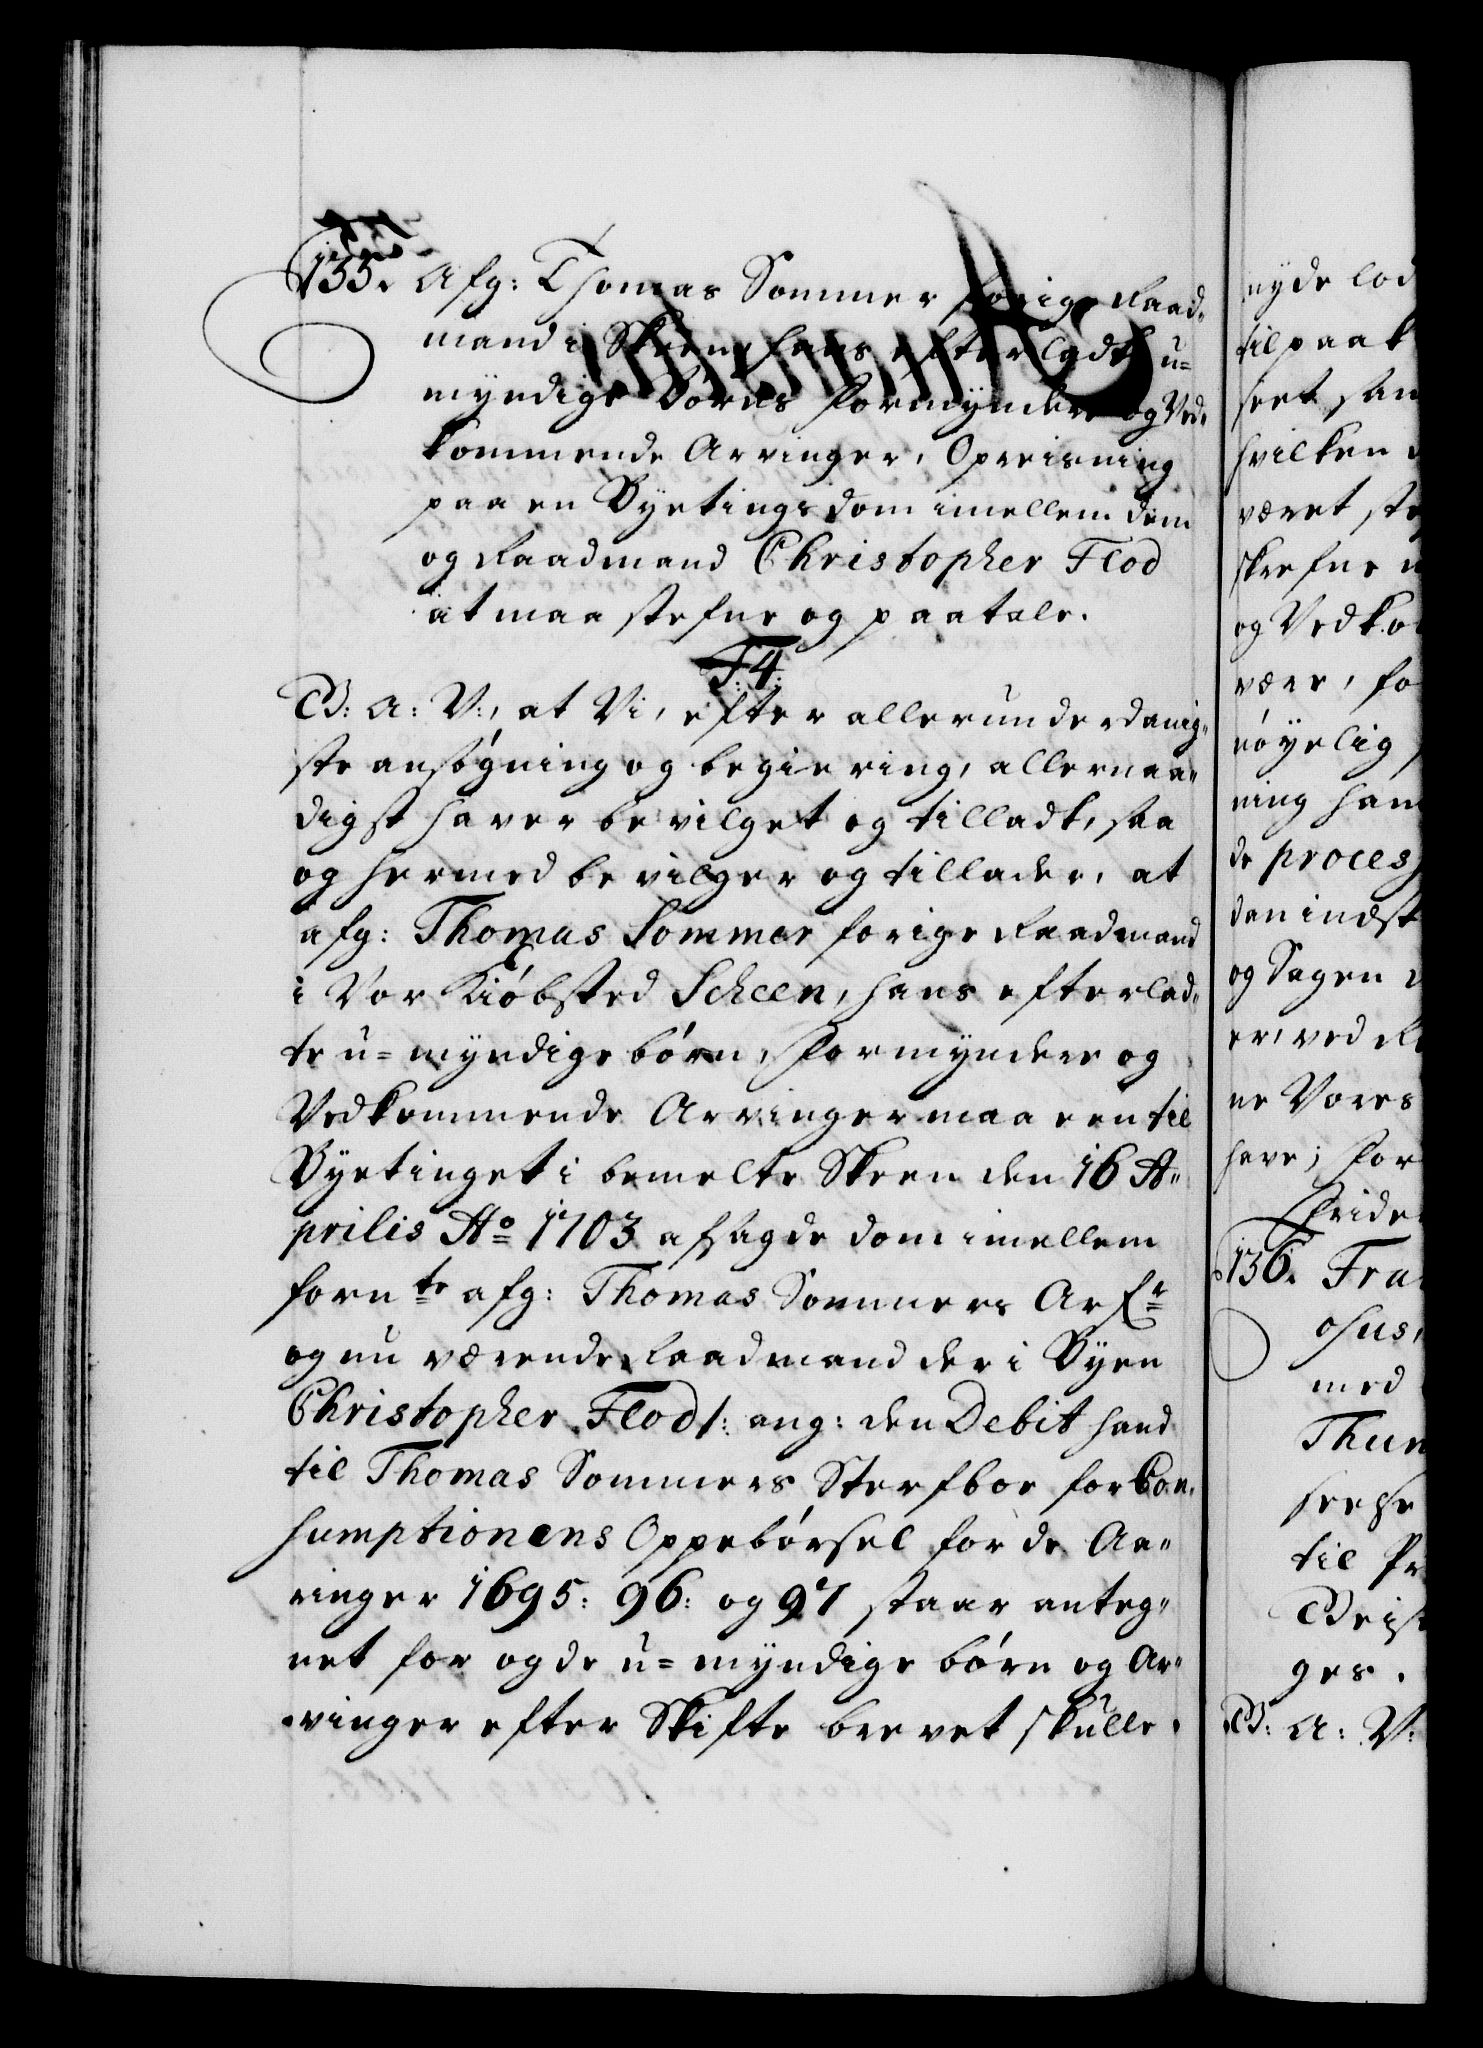 135. Afg: Thomas Sommer forige Raad-
mand i Skeen, hans efterladte u-
myndige Børns Formyndere og Ved-
kommende Arvinger, Opreisning
paa en Byetings dom imellem dem
og Raadmand Christopher Flod
at maa stefne og paatale.
F. 4.
G: A: V:, at Vi, efter allerunderdanig-
ste ansøgning og begiering, allernaa-
digst haver bevilget og tilladt, saa
og hermed bevilger og tillader, at
afg: Thomas Sommer forige Raadmand
i Vor Kiøbsted Scheen, hans efterlad-
te u-myndige børn, Formyndere og
Vedkommende Arvinger maa een til
Byetinget i bemelte Skeen den 16 A-
prilis Ao 1703 afsagde dom imellem
fornte afg: Thomas Sommers Arfr
og nu værende Raadmand der i Byen
Christopher Flod /: ang: den Debit hand
til Thomas Sommers Sterfboe for Con-
sumptionens Oppebørsel for de Aa-
ringer 1695: 96: og 97 staar anteg-
net for og de u-myndige børn og Ar-
vinger efter Skifte brevet skulle
nyde lod
til paak
seet, san
hvilken
været ste
skrefne
og Vedko
være, fo
nøyelig
ning ham
de process
den indst
og Sagen
er, ved
ne Vores
have; For
Frider
136. Fra
med
Thun
til Pr
ges.
G: A: V: